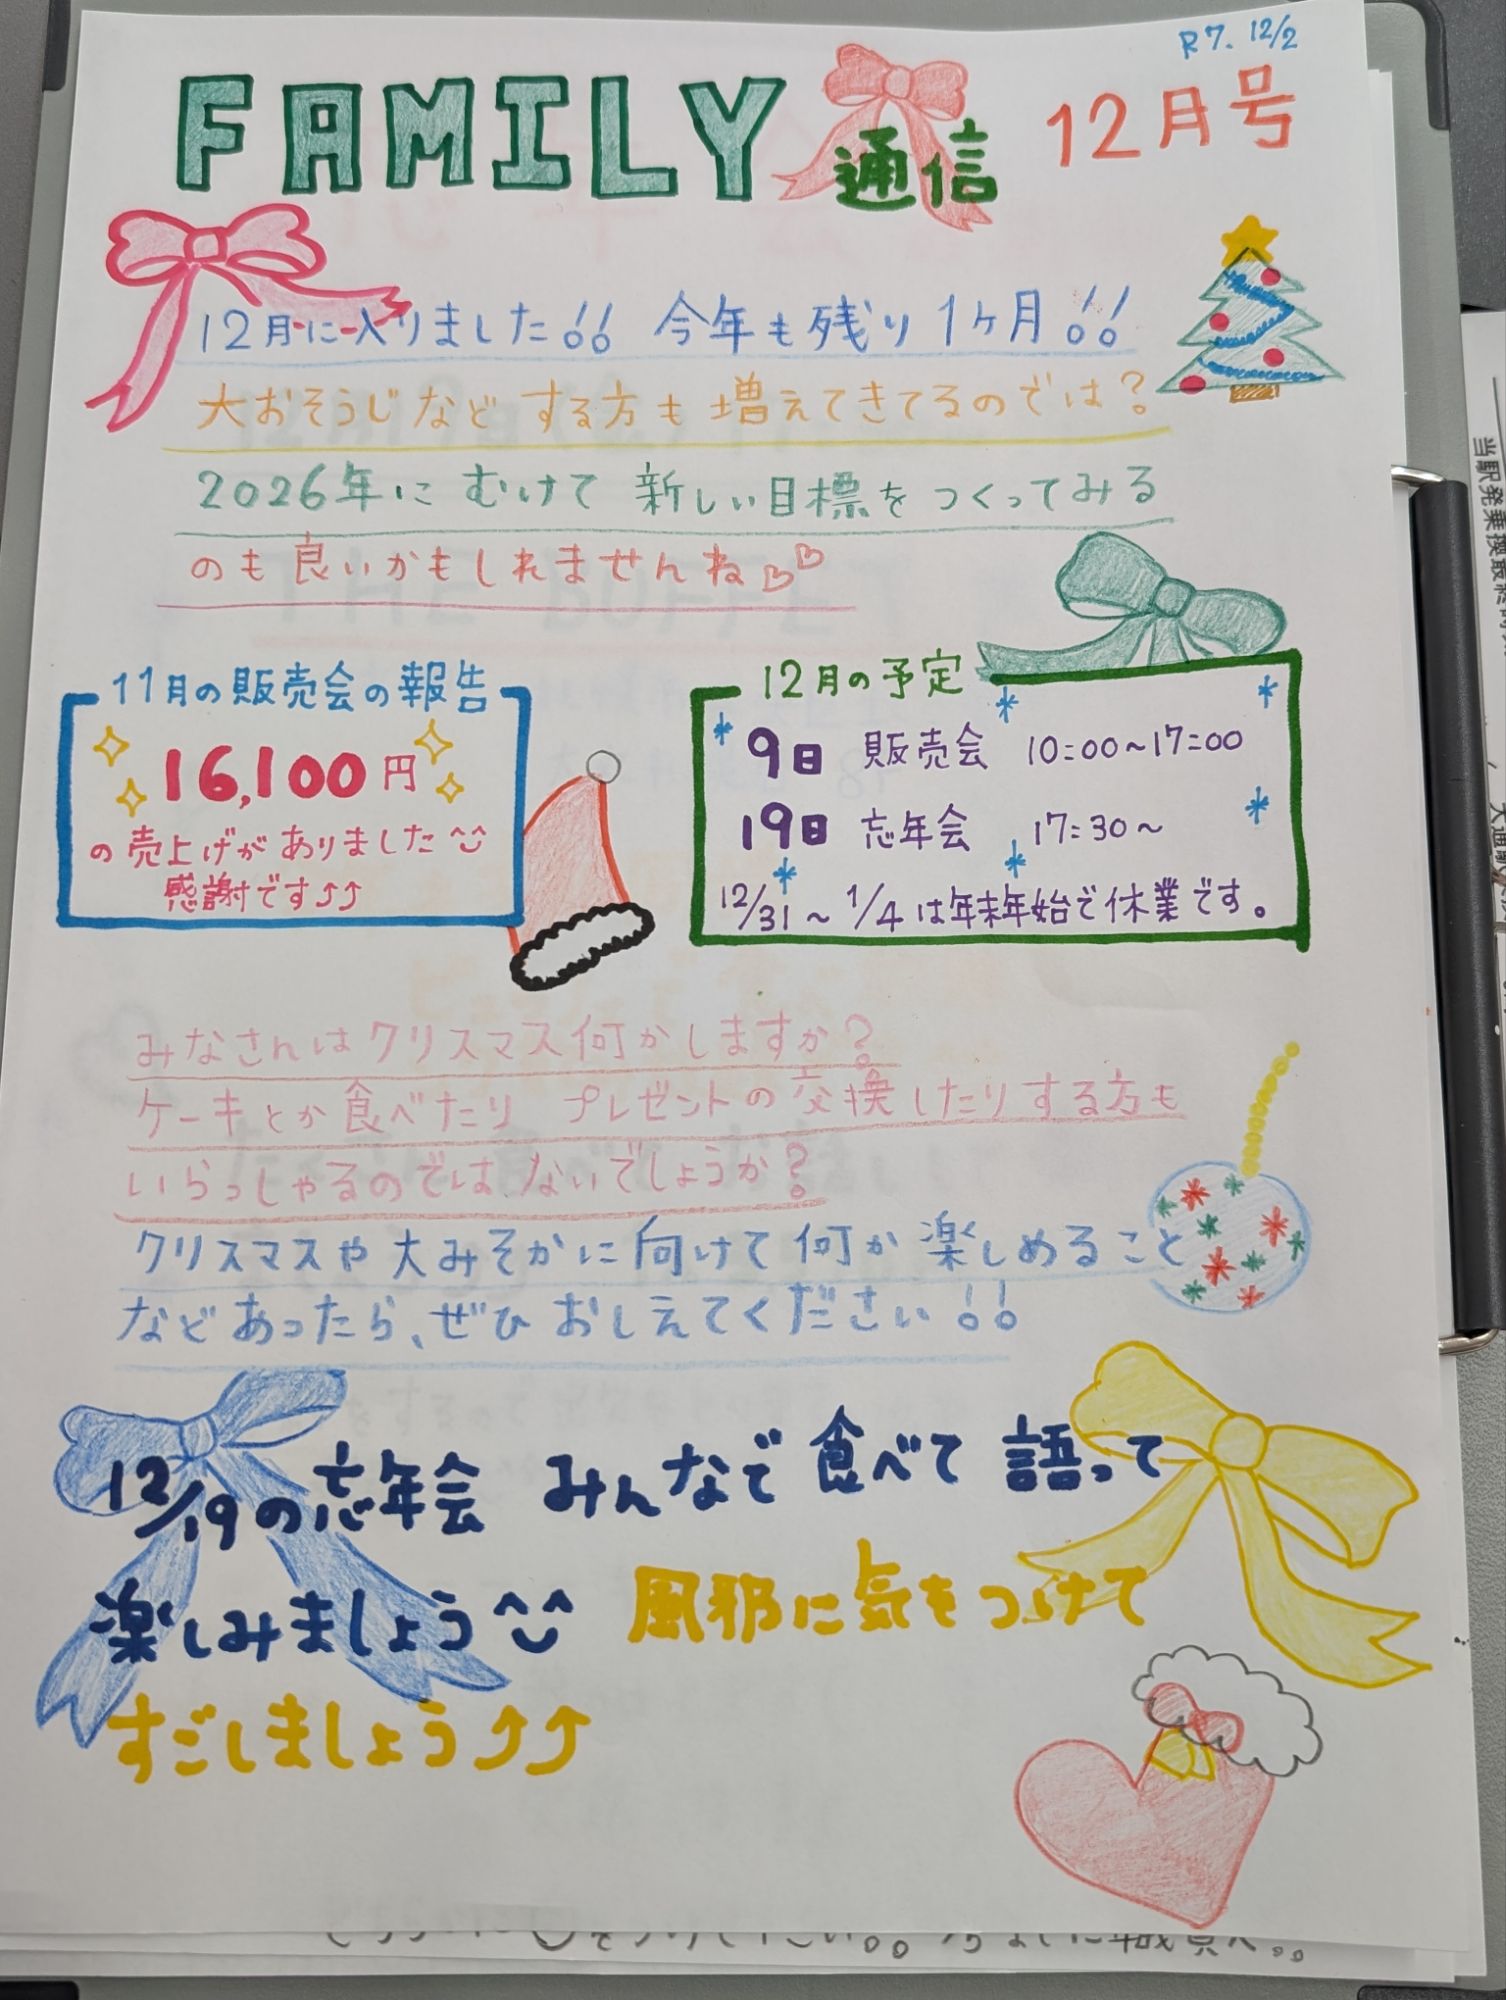 R7. 12/2
FAMILY 通信 12月号
12月に入りました!! 今年も残り1ヶ月!!
大おそうじなどする方も増えてきてるのでは?
2026年にむけて新しい目標をつくってみる
のも良いかもしれませんね♡♡
11月の販売会の報告
16,100円
の売上げがありました^^
感謝です⤴⤴
12月の予定
9日 販売会 10:00~17:00
19日 忘年会 17:30~
12/31~1/4は年末年始で休業です。
みなさんはクリスマス何かしますか?
ケーキとか食べたり プレゼントの交換したりする方も
いらっしゃるのではないでしょうか?
クリスマスや大みそかに向けて何か楽しめること
などあったら、ぜひおしえてください!!
12/19の忘年会 みんなで食べて語って
楽しみましょう^^ 風邪に気をつけて
すごしましょう⤴⤴
当駅発乗換最終